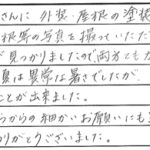 さんに外装・屋根の塗装
根等の写真を撮っていただ
が見つかりましたので両方とも
夏は異常な暑さでしたが
ことが出来ました。
らからの細かいお願いにも
がとうございました。